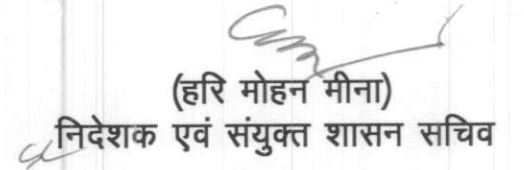 (हरि मोहन मीना)
निदेशक एवं संयुक्त शासन सचिव